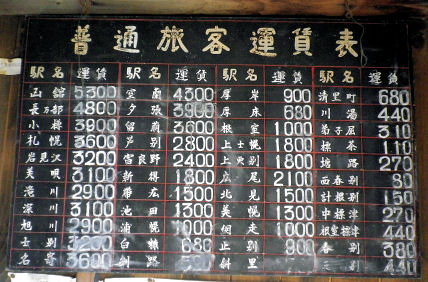 普通旅客運賃表
駅名 運賃 駅名 運賃 駅名 運賃 駅名 運賃
函館 5300 室蘭 4300 厚岸 900 清里町 680
長万部 4800 夕張 3900 厚床 680 川湯 440
小樽 3900 留萠 3600 根室 1000 弟子屈 310
札幌 3600 芦別 2800 上士幌 1800 標茶 110
岩見沢 3200 富良野 2400 上美別 1800 270
美唄 3100 新得 1800 広尾 2100 西春別 80
滝川 2900 帯広 1500 北見 1500 計根別 150
深川 3100 池田 1300 美幌 1300 中標津 270
旭川 2900 浦幌 1000 網走 1000 根室標津 440
士別 白糠 680 正別 900 春別 380
名寄 3600 釧路 斜里 440